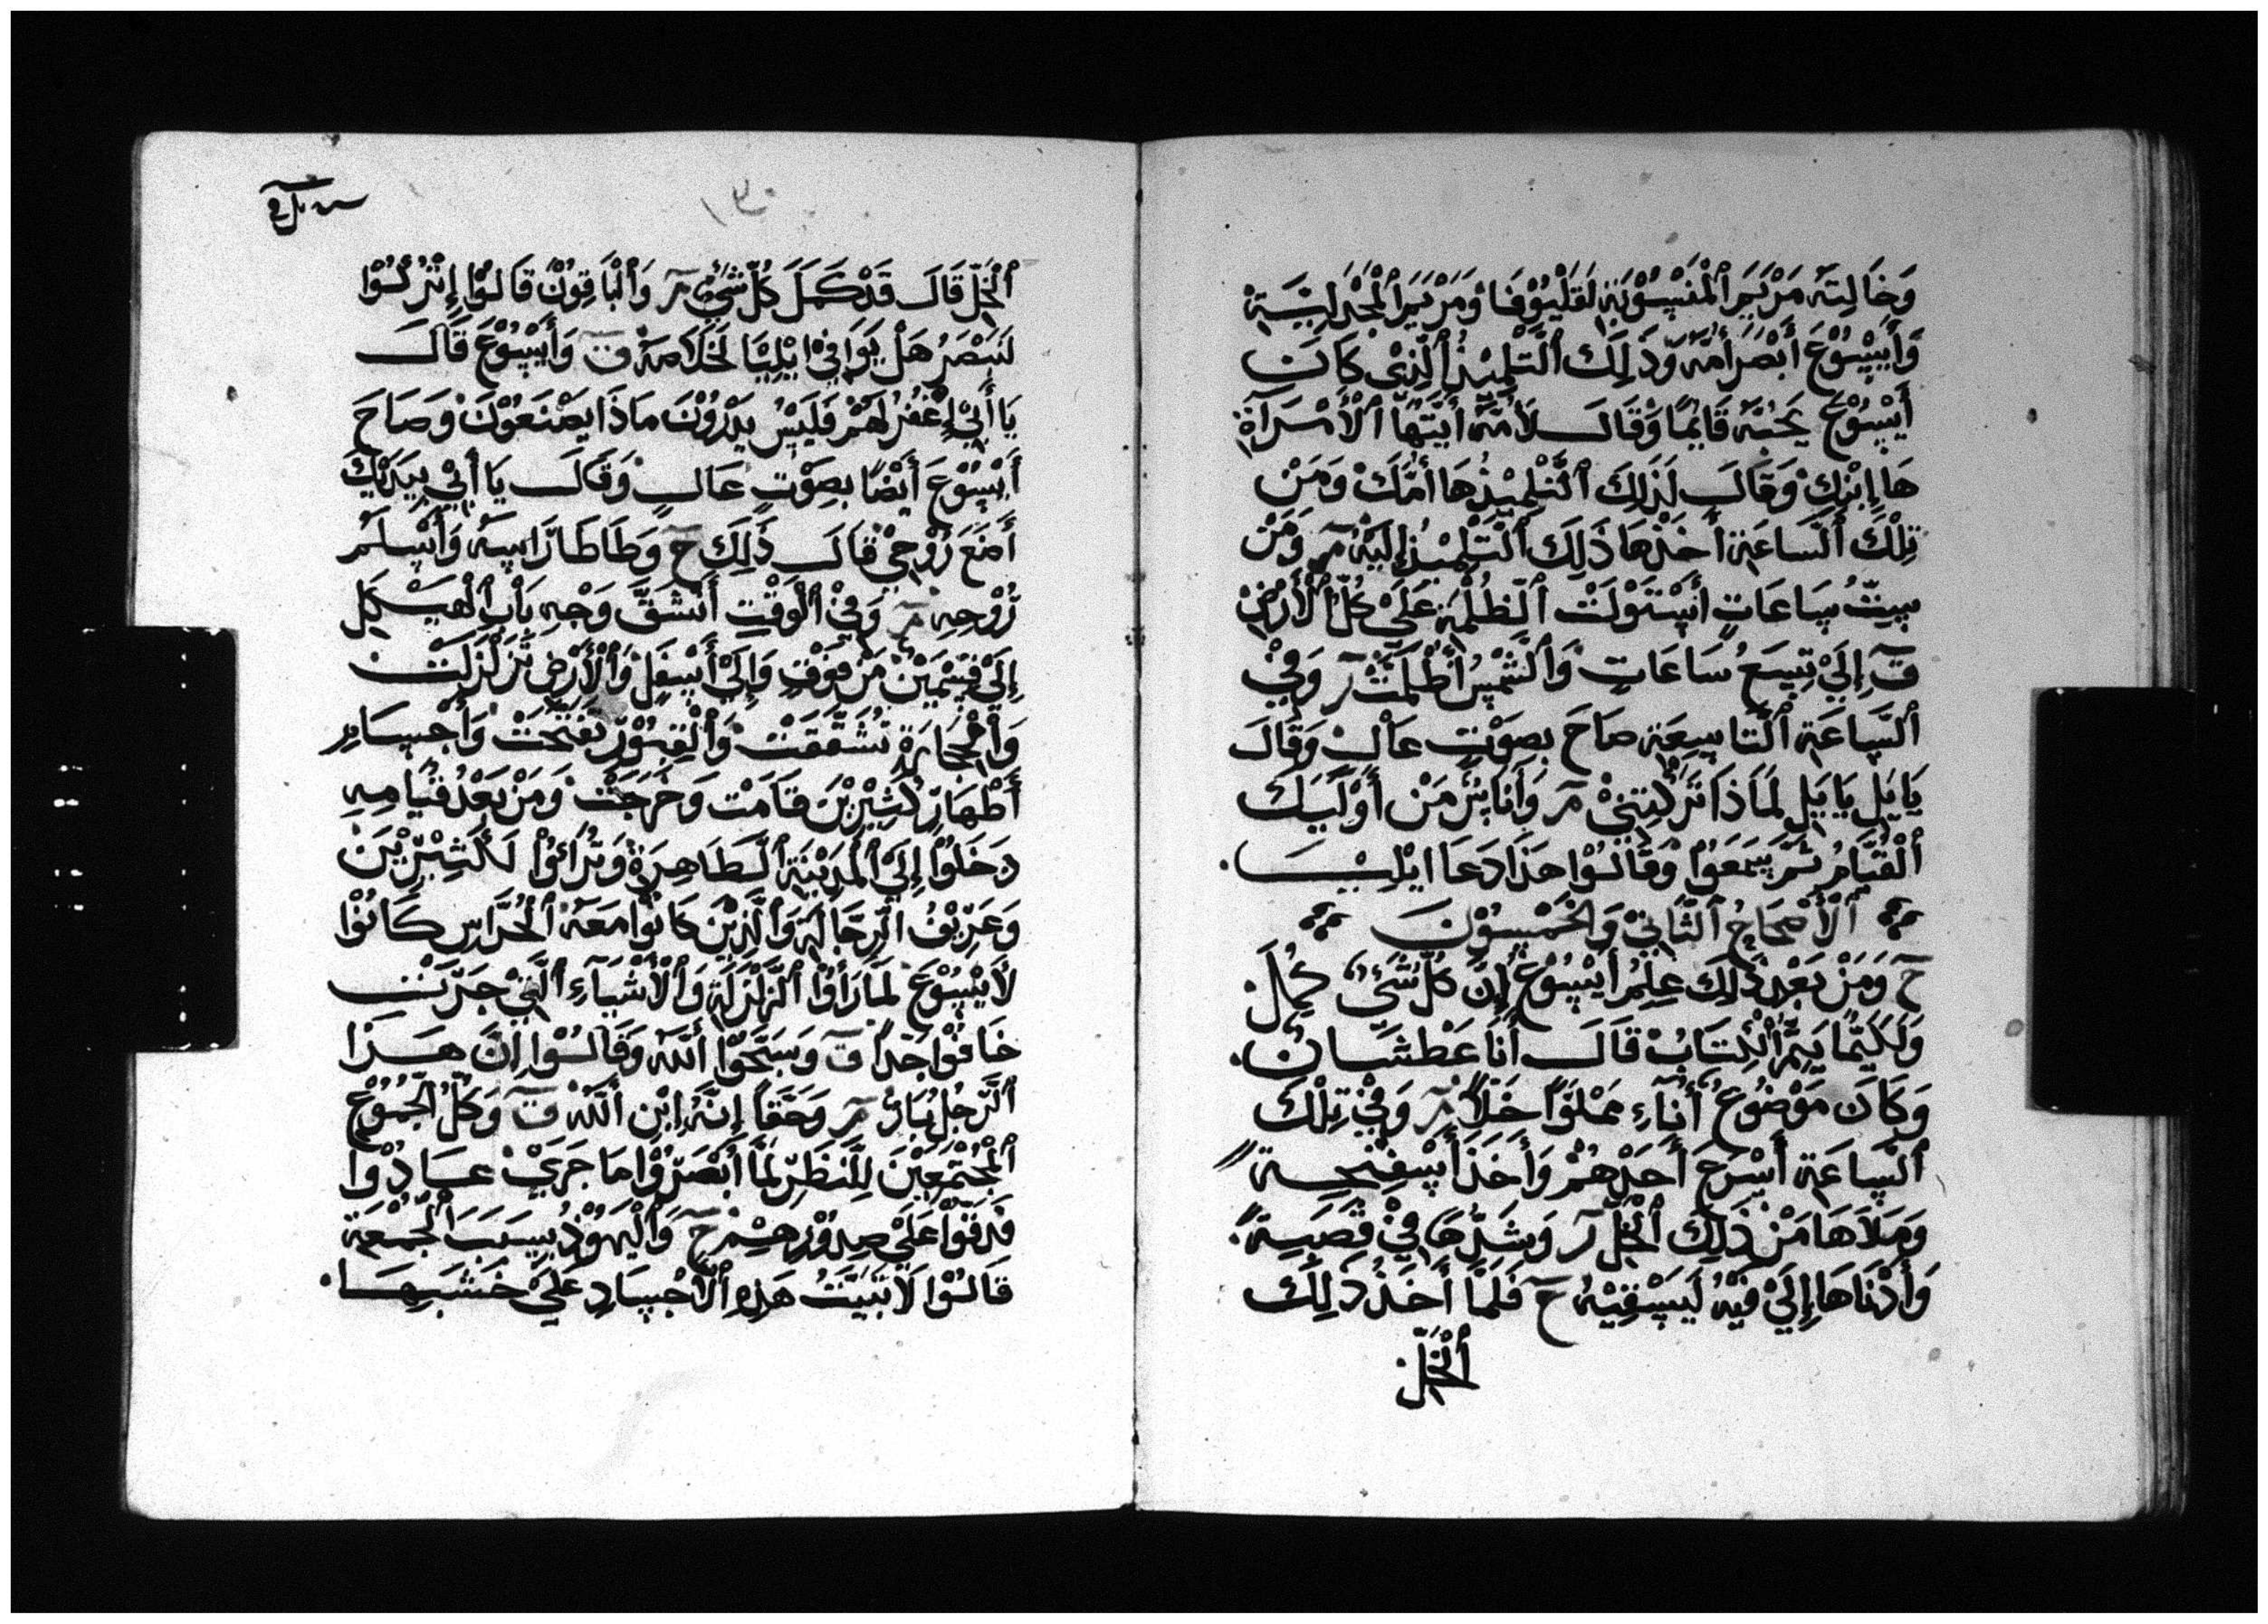 وَخَالِتَه مَرْيَمَ ٱلْمَنْسُوْبَة لَقَلْيُوْفَا وَمَرْيَمَ ٱلْمَجْدَلِيَّة
وَأَيْسُوْعَ أَبْصَرَ أُمَّه وَذَلِكَ ٱلتِّلْمِيْذُ ٱلَّذِيْ كَانَ
أَيْسُوْعَ يَحُبُّه قَايِمًا وَقَالَ لأُمِّه أَيَتَهَا ٱلْأَمْرَأَة
هَا إِبْنِكِ وَقَالَ لَذَلِكَ ٱلتِّلْمِيْذ هَا أُمَّكَ وَمَنْ
تِلْكَ ٱلسَّاعَة أَخَذَهَا ذَلِكَ ٱلتِّلْمِيْذ إِلَيْهِ مر وَمَنْ
سِتُّ سَاعَاتٍ أَسْتَوْلَتْ ٱلظُّلْمَة عَلَيْ كُلّ ٱلْأَرْضِ
ق إِلَيْ تِسَعُ سَاعَاتٍ وَٱلشَّمْسُ أَظْلَمَتْ ر وَفِيْ
ٱلسَّاعَة ٱلتَّاسِعَة صَاحَ بِصَوْتٍ عَالٍ وَقَالَ
يَايَلِ يَايَلِ لمَاذَا تَرَكْتَنِيْ مر وَأَنَاسٌ مَنْ أَوْلَيَكَ
ٱلْقُيَّامُ لَمَّ سَمَعُوْا وَقَالُوْا هَذَا دَعَا ايْلِيَا
ٱلْأَصْحَاحُ ٱلثَّانِيْ وَالخَمْسُوْنَ
ح وَمَنْ بَعْدِ ذَلِكَ عِلِمَ أَيْسُوْعَ إِنَّ كُلُّ شَيْء كَمُلَ
وَلَكَيْمَا يَتِمَّ ٱلْكِتَابُ قَالَ أَنَا عَطْشَانٌ
وَكَانَ مَوْضُوْعُ أَنَاءِ مَمْلَوًا خَلًّا مر وَفِيْ تِلْكَ
ٱلسَّاعَة أَسْرَعَ أَحَدْهُمْ وَأَخَذَ أَسْفِنْجِة
وَمَلَاهَا مَنْ ذَلِكَ ٱلْخَلّ ر وَشَدَّهَا فِيْ قَصَبِة
وَأَدْنَاهَا إِلَيْ فِيْهِ لَيَسْقِيْهُ ح فَلَمَّا أَخَذَ ذَلِكَ
ٱلْخَلّ
ٱلْخَلّ قَالَ قَدْ كَمَلَ كُلّ شَيْءٍ مر وَٱلْبَاقِوْنَ قَالُوْا إِتْرِكُوْا
لنَبْصَرُ هَلْ يَوَافِيْ ايْلِيَّا لَخَلَاصَهُ ق وَأَيْسُوْعَ قَالَ
يَا أَبِيْ إِغْفُرْ لَهَمْ فَلَيْسْ يَدْرُوْنَ مَاذَا يَصْنَعُوْنَ وَصَاحَ
أَيْسُوْعَ أَيْضًا بصِوْتٍ عَالٍ وَقَالَ يَا أَبِيْ بِيَدَيْكَ
أَضَعَ رُوْحِيْ قَالَ ذَلِكَ ح وَطَاطَا رَّاسِه وَأَسْلَمَ
رُوْحِهِ مر وَفِيْ ٱلْوَقْتِ أَنْشَقَّ وَجْهِ بَابِ ٱلْهَيْكَلِ
إِلَيْ قِسْمَيْنْ مَنْ فَوْقٍ وَإِلَيْ أَسْفَلِ وَٱلْأَرْضِ تَزَلْزَلَتْ
وَٱلْحِجَارَةِ تَشَّقَقَتْ وَٱلْقِبُوْرِ تَفَتَّحَتْ وَأَجْسَامِ
أَطْهَارِ كَثِيْرِيْنَ قَامَتْ وَخَرَجَتْ وَمَنْ بَعْدُ قِيَامِهِ
دَخَلُوْا إِلَيْ ٱلْمَدَيْنَة ٱلطَّاهِرَةِ وَتَرَائَوْا لَكَثِيْرِّيْنَ
وَعَرِيْفُ ٱلرِّجَّالَة وَٱلَّذِيْنَ كَانُوْا مَعَهُ ٱلْحُرَّاسِ كَانُوْا
لأَيْسُوْعَ لمَّا رَأَوْا ٱلزَّلْزَلَةِ وَٱلْأَشْيَآءِ ٱلَّتِيْ جَرَتْ
خَافُوْا جَدًا ق وَسَبَّحُوْا ٱللَّه وَقَالُوْا اِنَّ هَذَا
ٱلرَّجُلُ بَارٌ مر وَحَقًّا إِنَّه اِبْنِ ٱللَّه ق وَكُلُّ الجُمُوْعُ
ٱلْمَجْتَمَعِيْنَ لِلنَّظَرِ لمَّا أَبْصَرُوْا مَا جَرَيْ عَادُوْا
فَدَقُوْا عَلَيْ صِدُوْرِهِمْ ح وَٱلْيَهُوْدُ بِسَبَبَ ٱلْجُمْعَة
قَالُوْا لَا تَبِيْتُ هَذِهِ ٱلْأَجْسَادِ عَلَيْ خَشَبِهَا